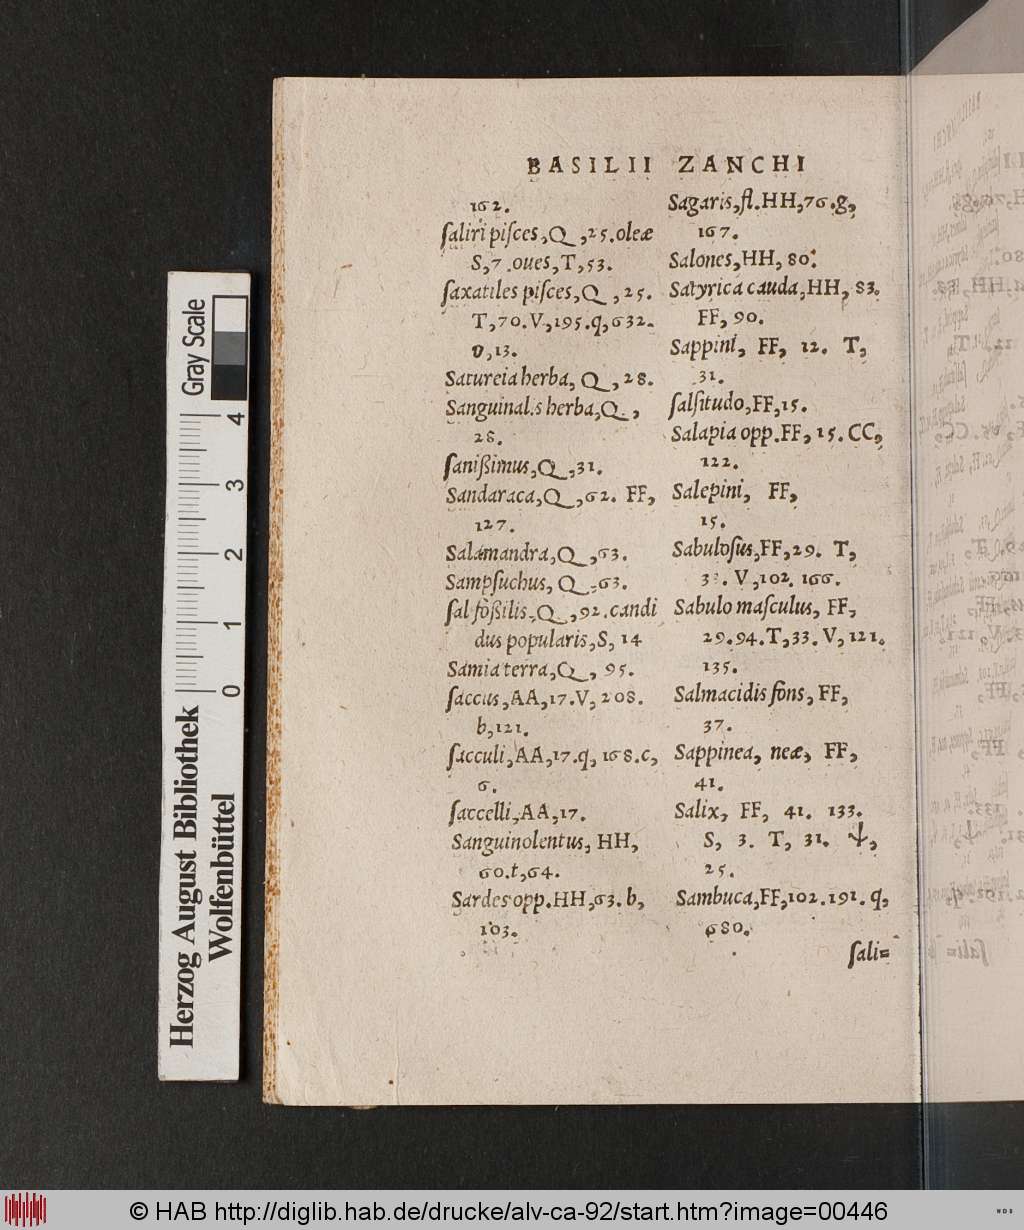 BASILII ZANCHI
162.
ſaliri piſces, Q, 25. oleæ
S, 7. oues, T, 53.
ſaxatiles piſces, Q, 25.
T, 70. V, 195. q, 632.
v, 13.
Satureia herba, Q, 28.
Sanguinalis herba, Q,
28.
ſanißimus, Q, 31.
Sandaraca, Q, 62. FF,
127.
Salamandra, Q, 63.
Sampſuchus, Q, 63.
ſal foßilis, Q, 92. candi
dus popularis, S, 14
Samia terra, Q, 95.
ſaccus, AA, 17. V, 208.
b, 121.
ſacculi, AA, 17. q, 168. c,
6.
ſaccelli, AA, 17.
Sanguinolentus, HH,
60. t, 64.
Sardes opp. HH, 63. b,
103.
Sagaris, fl. HH, 76. g,
167.
Salones, HH, 80.
Satyrica cauda, HH, 83.
FF, 90.
Sappini, FF, 12. T,
31.
ſalſitudo, FF, 15.
Salapia opp. FF, 15. CC,
122.
Salepini, FF,
15.
Sabuloſus, FF, 29. T,
V, 102. 166.
Sabulo maſculus, FF,
29. 94. T, 33. V, 121.
135.
Salmacidis fons, FF,
37.
Sappinea, neæ, FF,
41.
Salix, FF, 41. 133.
S, 3. T, 31. ψ,
25.
Sambuca, FF, 102. 191. q,
680.
ſali=
Gray Scale
4
3
2
1
0
Herzog August Bibliothek
Wolfenbüttel
© HAB http://diglib.hab.de/drucke/alv-ca-92/start.htm?image=00446